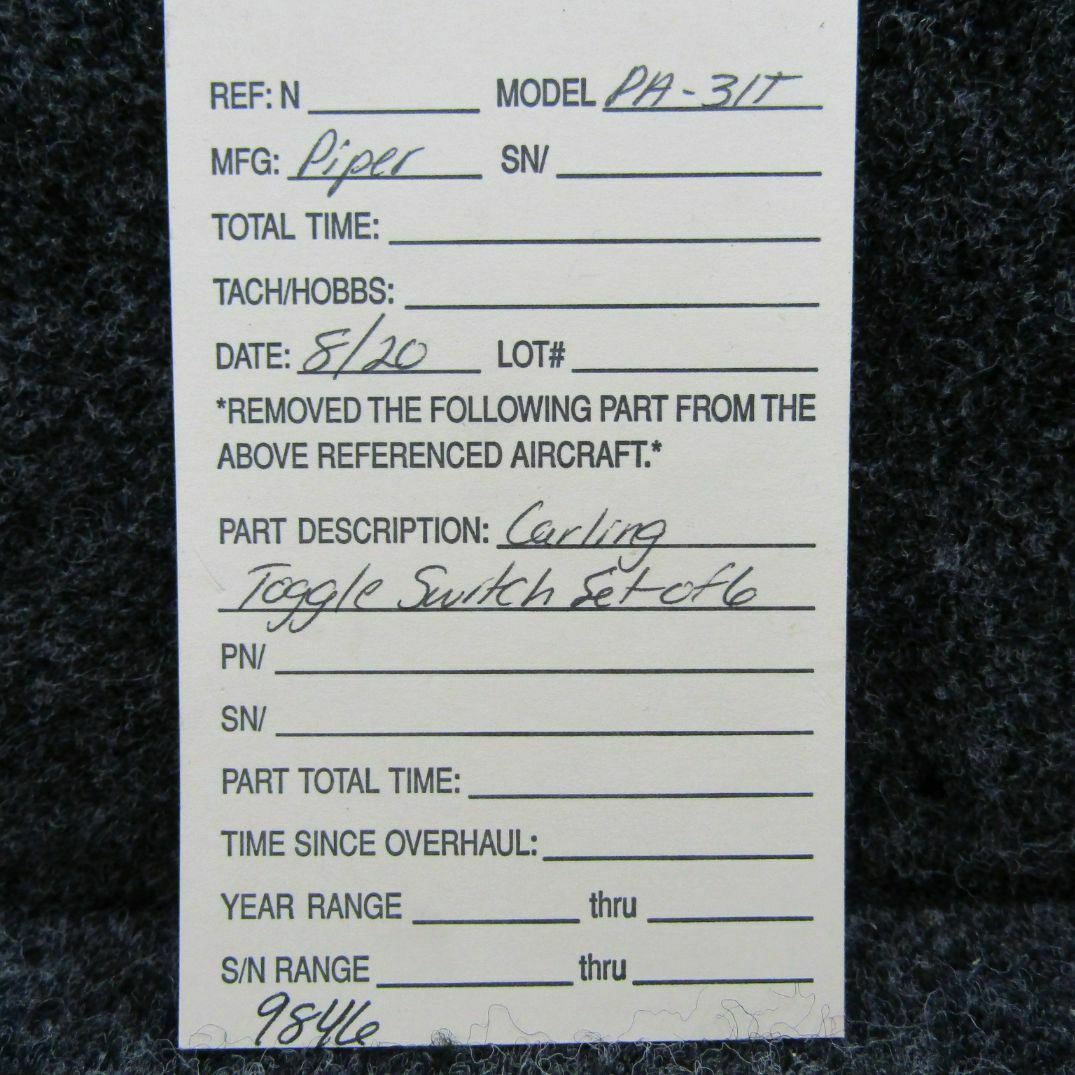 REF: N MODEL PA-31T
MFG: Piper SN/
TOTAL TIME:
TACH/HOBBS:
DATE: 8/20 LOT#
*REMOVED THE FOLLOWING PART FROM THE
ABOVE REFERENCED AIRCRAFT.*
PART DESCRIPTION: Carling
Toggle Switch Set of 6
PN/
SN/
PART TOTAL TIME:
TIME SINCE OVERHAUL:
YEAR RANGE thru
S/N RANGE thru
9846